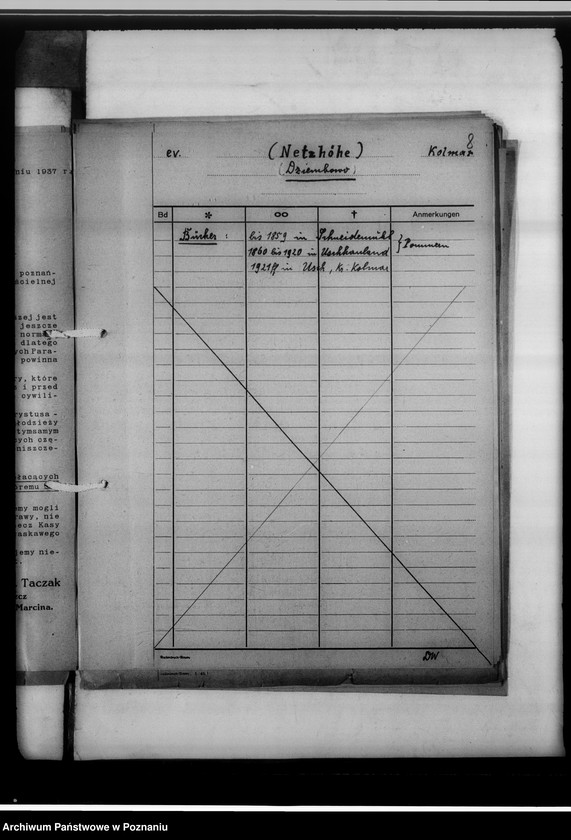 niu 1937 r.
poznań-
ścielnej
szej jest
jeszcze
dlatego
ych Para-
powinna
ry, które
i przed
cywili-
rystusa -
młodzieży
tymsamym
nych czę-
niszcze-
żacących
óremu
my mogli
rawy, nie
ecz Kasy
askawego
jemy nie-
. Taczak
cz
Marcina.
8
ev. (Netzhöhe) Kolmar
(Dziembowo)
Bd * oo † Anmerkungen
Bücher: bis 1859 in Schneidemühl } Pommern
1860 bis 1920 in Uschhauland
1921 ff in Usch, Kr. Kolmar
DW
Archiwum Państwowe w Poznaniu